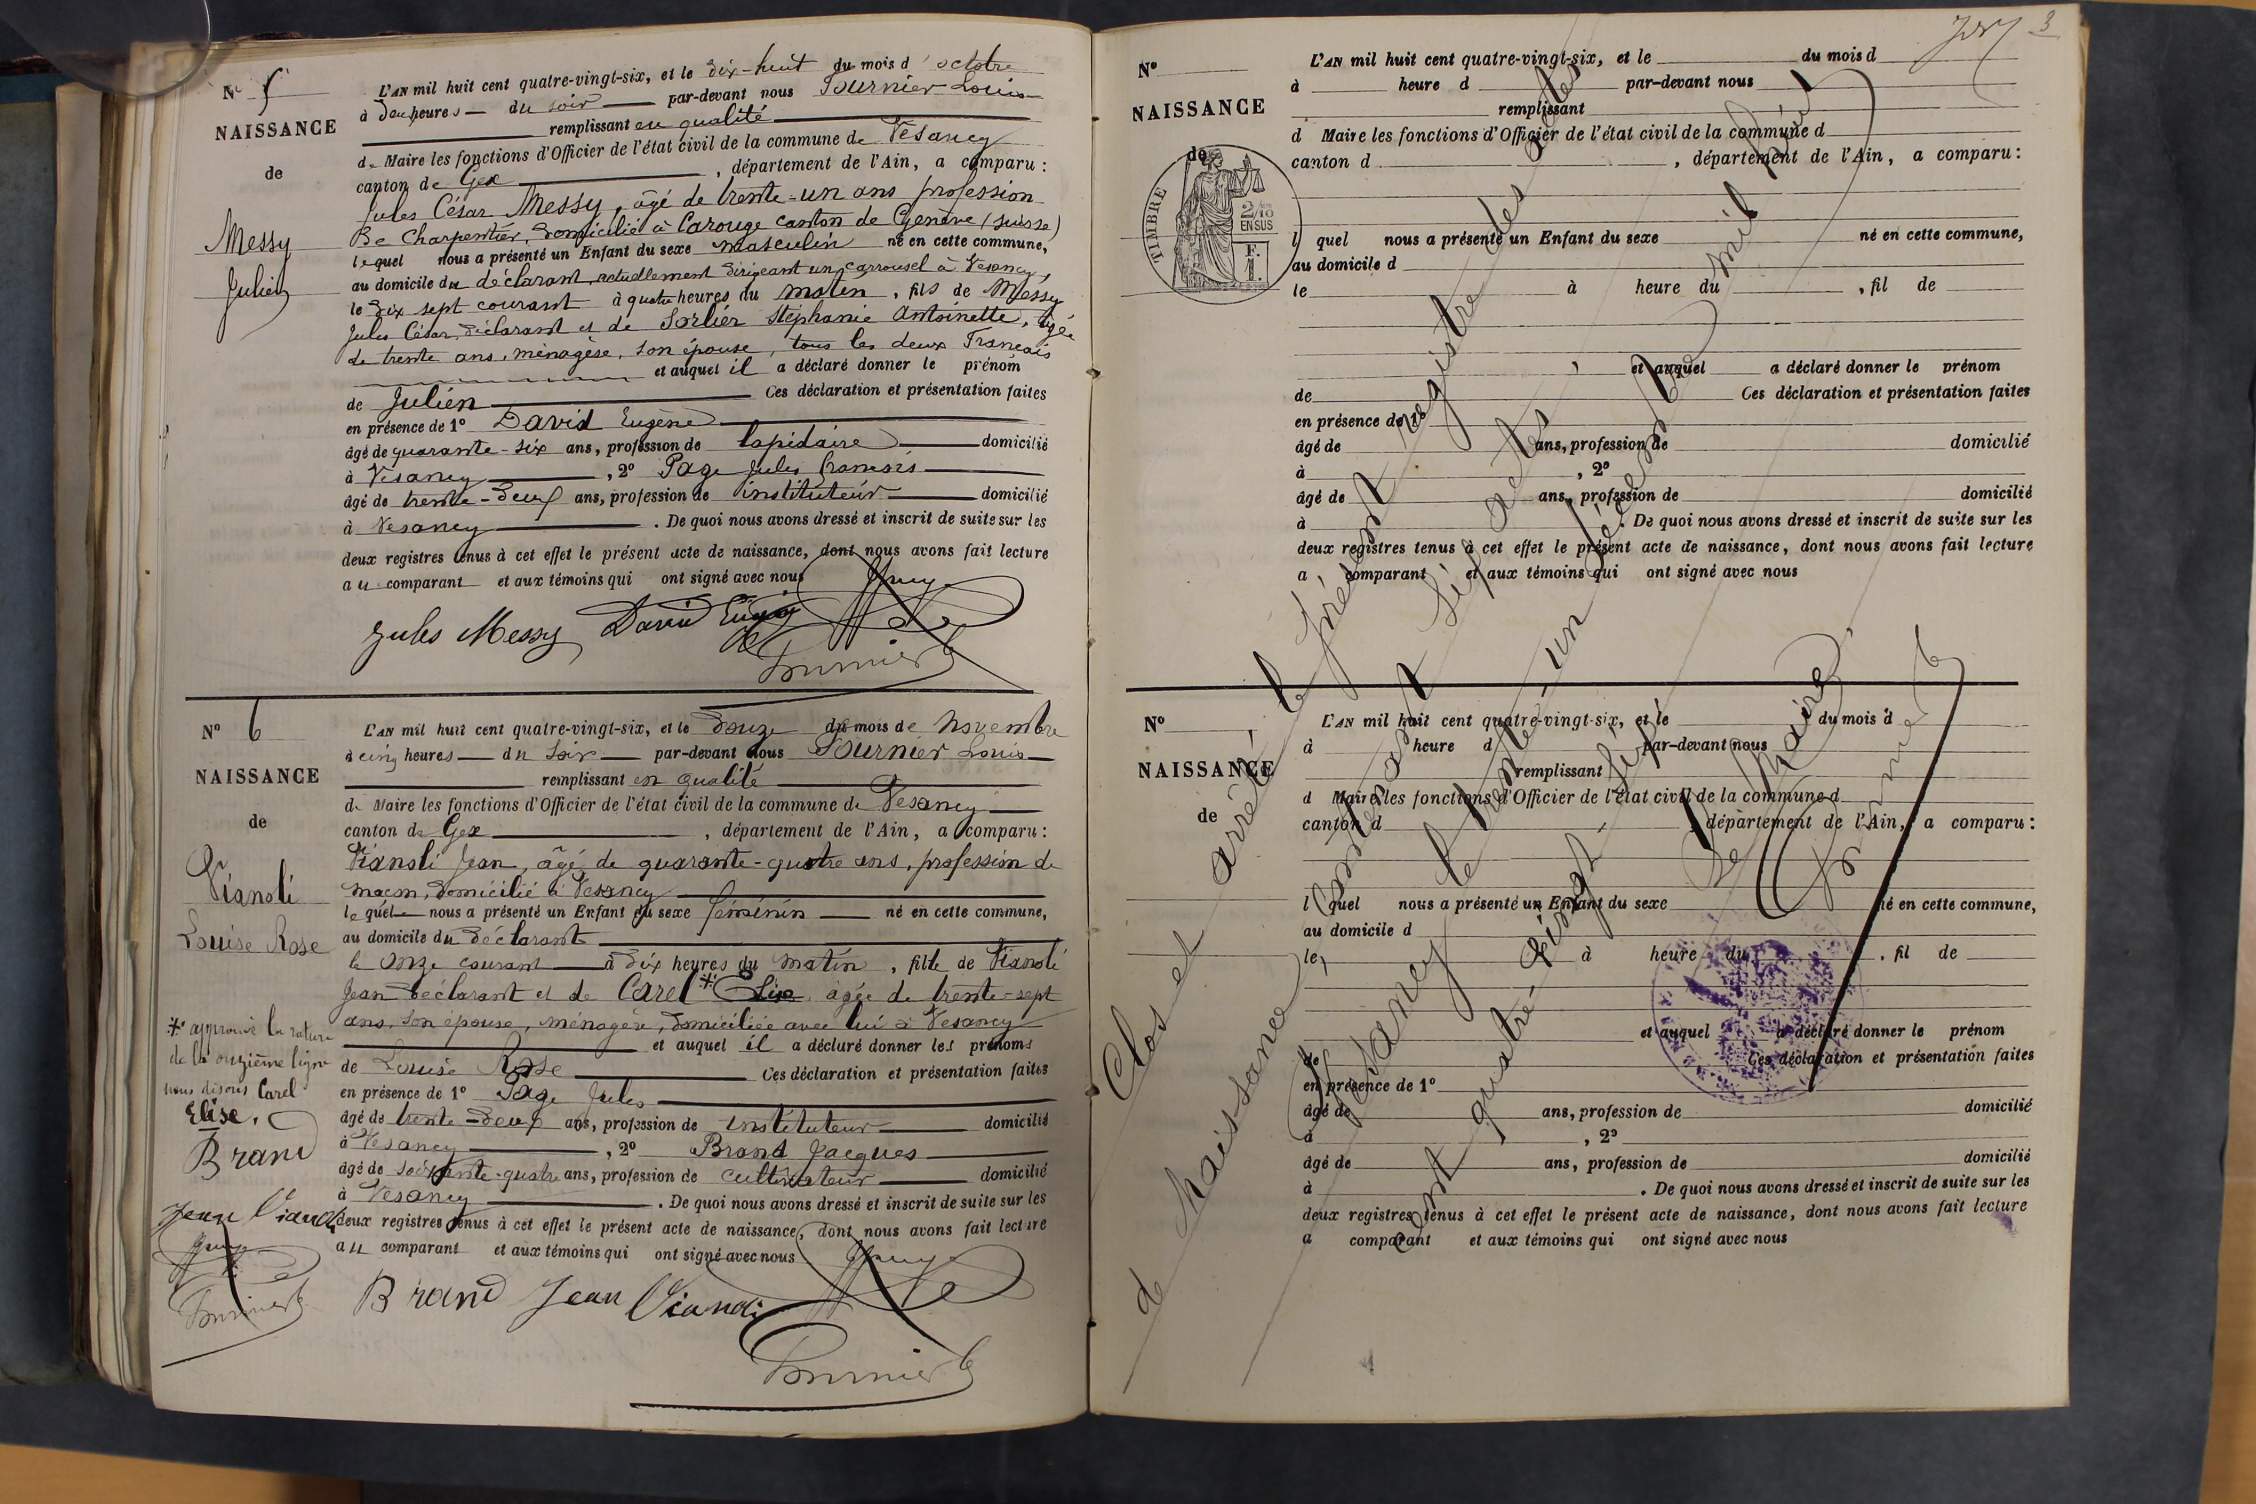 N° 5
NAISSANCE
de
Messy
Julien
L'AN mil huit cent quatre-vingt-six, et le dix-huit du mois d'octobre
à deux heures du soir par-devant nous Fournier Louis
remplissant en qualité
de Maire les fonctions d'Officier de l'état civil de la commune de Vesancy
canton de Gex, département de l'Ain, a comparu :
Jules César Messy, âgé de trente-un ans profession
de Charpentier, domicilié à Carouge canton de Genève (suisse)
lequel nous a présenté un Enfant du sexe masculin né en cette commune,
au domicile du déclarant, actuellement dirigeant un carrousel à Vesancy,
le dix sept courant à quatre heures du matin, fils de Messy
Jules César, déclarant et de Sorlier Stéphanie Antoinette, âgée
de trente ans, ménagère, son épouse, tous les deux Français
et auquel il a déclaré donner le prénom
de Julien Ces déclaration et présentation faites
en présence de 1° David Eugène
âgé de quarante-six ans, profession de lapidaire domicilié
à Vesancy, 2° Page Jules François
âgé de trente-deux ans, profession de instituteur domicilié
à Vesancy. De quoi nous avons dressé et inscrit de suite sur les
deux registres tenus à cet effet le présent acte de naissance, dont nous avons fait lecture
au comparant et aux témoins qui ont signé avec nous
Jules Messy David Eugène
Fournier L
N° 6
NAISSANCE
de
Vianoli
Louise Rose
* approuvé la rature
de la onzième ligne
nous disons Carel
Elise.
Brand
Jean Vianoli
Fournier L
L'AN mil huit cent quatre-vingt-six, et le douze du mois de novembre
à cinq heures du soir par-devant nous Fournier Louis
remplissant en qualité
de Maire les fonctions d'Officier de l'état civil de la commune de Vesancy
canton de Gex, département de l'Ain, a comparu :
Vianoli Jean, âgé de quarante-quatre ans, profession de
maçon, domicilié à Vesancy
lequel nous a présenté un Enfant du sexe féminin né en cette commune,
au domicile du déclarant
le onze courant à dix heures du matin, fille de Vianoli
Jean déclarant et de Carel * âgée de trente-sept
ans, son épouse, ménagère, domiciliée avec lui à Vesancy
et auquel il a déclaré donner les prénoms
de Louise Rose Ces déclaration et présentation faites
en présence de 1° Page Jules
âgé de trente-deux ans, profession de instituteur domicilié
à Vesancy, 2° Brand Jacques
âgé de soixante-quatre ans, profession de cultivateur domicilié
à Vesancy. De quoi nous avons dressé et inscrit de suite sur les
deux registres tenus à cet effet le présent acte de naissance, dont nous avons fait lecture
au comparant et aux témoins qui ont signé avec nous
Brand Jean Vianoli
Fournier L
3
N°
NAISSANCE
de
TIMBRE
2/10
EN SUS
F.
1.
L'AN mil huit cent quatre-vingt-six, et le du mois d
à heure d par-devant nous
remplissant
d Maire les fonctions d'Officier de l'état civil de la commune d
canton d , département de l'Ain, a comparu :
l quel nous a présenté un Enfant du sexe né en cette commune,
au domicile d
le à heure du , fil de
, et auquel a déclaré donner le prénom
de Ces déclaration et présentation faites
en présence de 1°
âgé de ans, profession de domicilié
à , 2°
âgé de ans, profession de domicilié
à . De quoi nous avons dressé et inscrit de suite sur les
deux registres tenus à cet effet le présent acte de naissance, dont nous avons fait lecture
a comparant et aux témoins qui ont signé avec nous
N°
NAISSANCE
de
L'AN mil huit cent quatre-vingt-six, et le du mois d
à heure d par-devant nous
remplissant
d Maire les fonctions d'Officier de l'état civil de la commune d
canton d , département de l'Ain, a comparu :
l quel nous a présenté un Enfant du sexe né en cette commune,
au domicile d
le à heure du , fil de
et auquel a déclaré donner le prénom
de Ces déclaration et présentation faites
en présence de 1°
âgé de ans, profession de domicilié
à , 2°
âgé de ans, profession de domicilié
à . De quoi nous avons dressé et inscrit de suite sur les
deux registres tenus à cet effet le présent acte de naissance, dont nous avons fait lecture
a comparant et aux témoins qui ont signé avec nous
Clos et arrêté, le présent registre des actes
de naissance contenant six actes
à Vesancy le trente-un décembre mil huit
cent quatre-vingt six.
Le Maire,
Fournier L